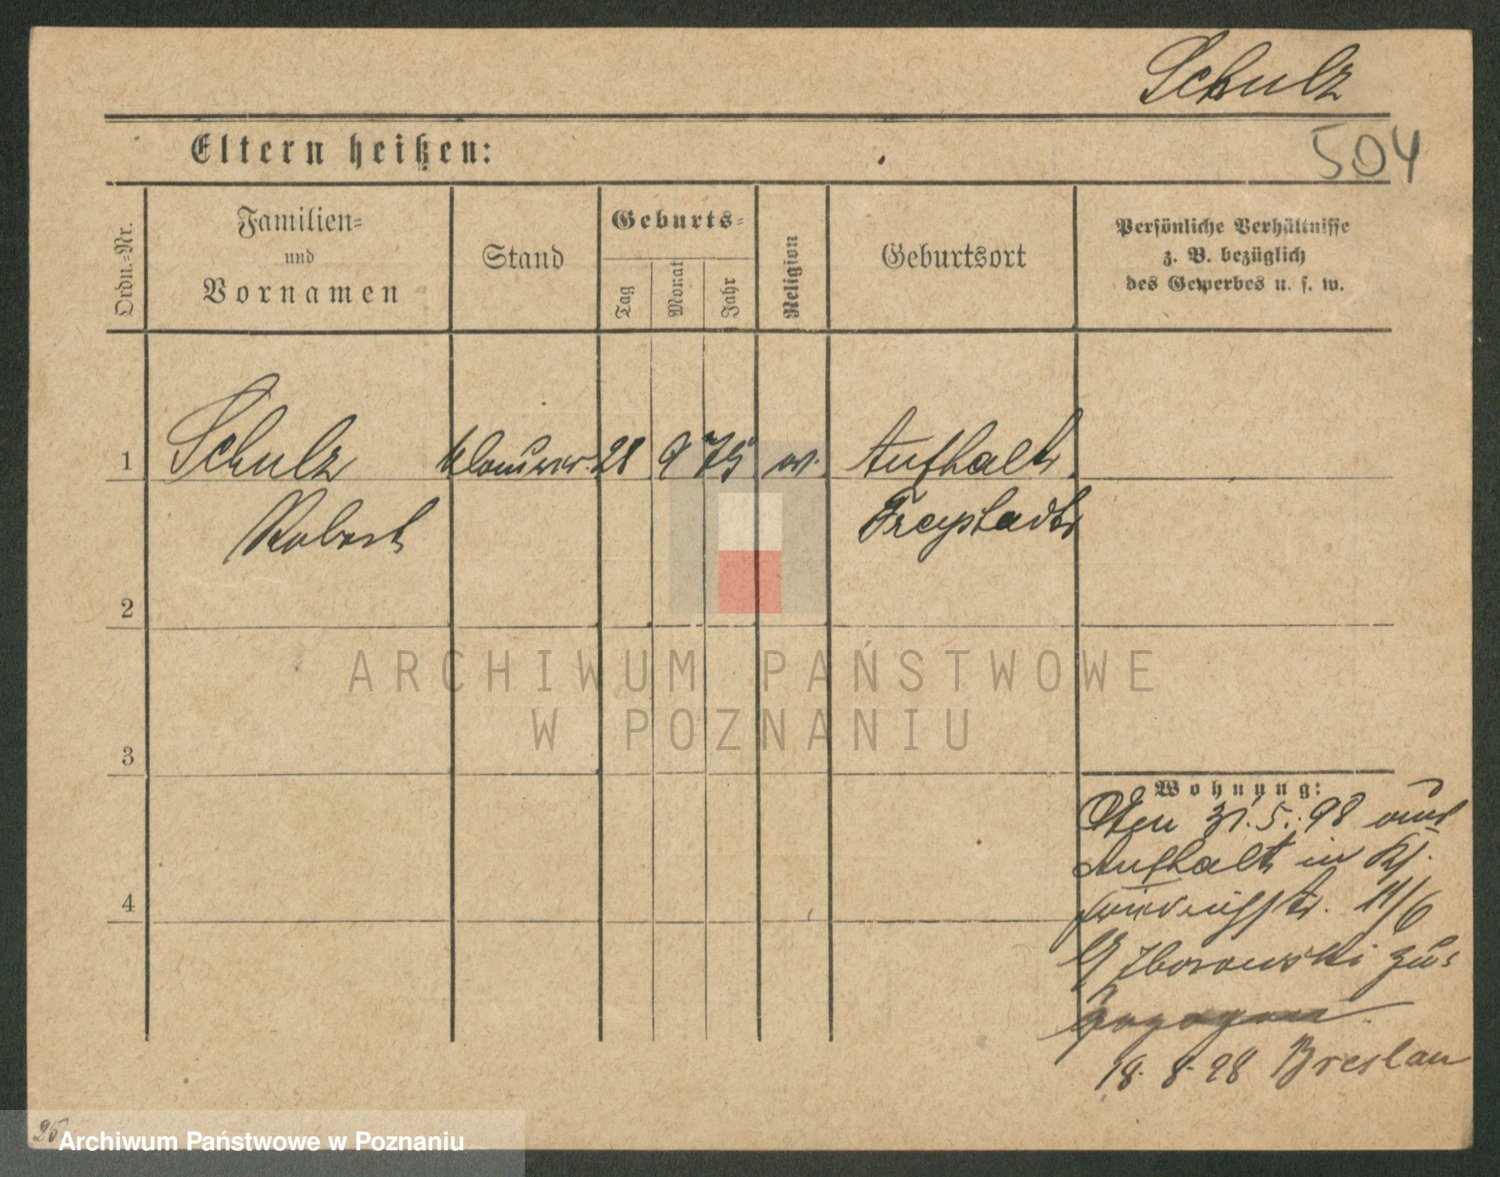 Schulz
504
Eltern heißen:
Ordn.-Nr.
Familien-
und
Vornamen
Stand
Geburts-
Tag
Monat
Jahr
Religion
Geburtsort
Persönliche Verhältnisse
z. B. bezüglich
des Gewerbes u. s. w.
1 Schulz 28 9 75 Aufhalt
Robert Freystadt
2
3
4
ARCHIWUM PAŃSTWOWE
W POZNANIU
Wohnung:
Den 31.5.98 aus
Aufhalt in
11/6
Zborowski zu-
gezogen
18. 8. 98 Breslau
25
Archiwum Państwowe w Poznaniu